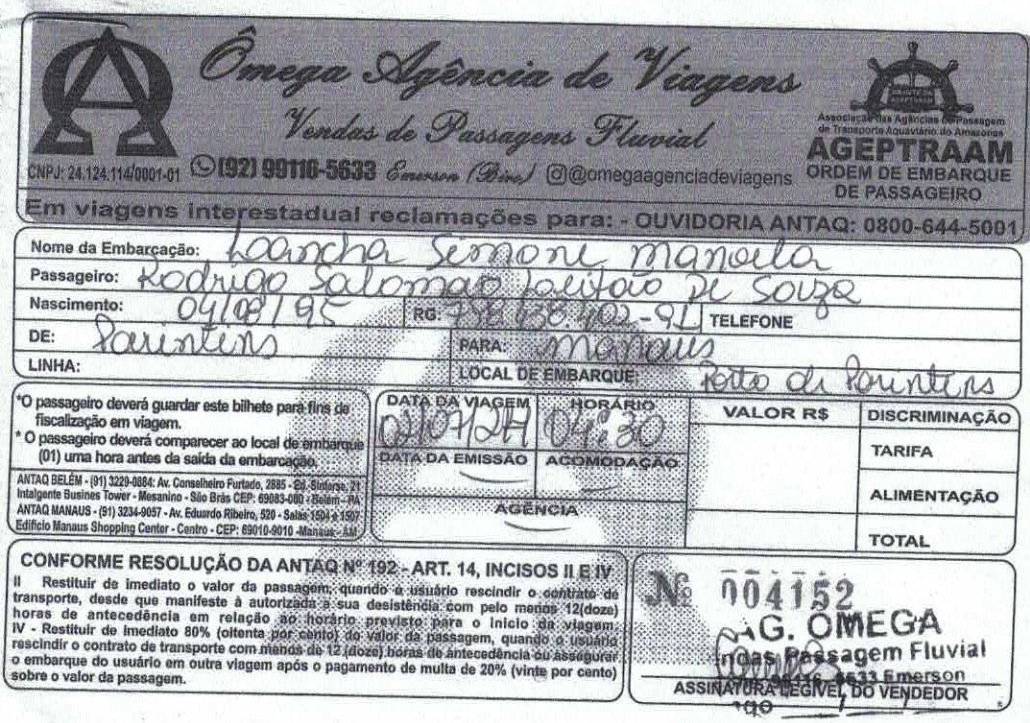 Ômega Agência de Viagens
Vendas de Passagens Fluvial
CNPJ: 24.124.114/0001-01 (92) 99116-5633 Emerson (Bira) @omegaagenciadeviagens
Associação das Agências de Passagem
de Transporte Aquaviário do Amazonas
AGEPTRAAM
ORDEM DE EMBARQUE
DE PASSAGEIRO
Em viagens interestadual reclamações para: - OUVIDORIA ANTAQ: 0800-644-5001
Nome da Embarcação: Loancha Simone Manoela
Passageiro: Rodrigo Salomao Leitão De Souza
Nascimento: 04/08/95 RG: TELEFONE
DE: Parintins PARA: Manaus
LINHA: LOCAL DE EMBARQUE: Porto de Parintins
*O passageiro deverá guardar este bilhete para fins de
fiscalização em viagem.
* O passageiro deverá comparecer ao local de embarque
(01) uma hora antes da saída da embarcação.
ANTAQ BELÉM - (91) 3229-0884: Av. Conselheiro Furtado, 2885 - Ed. Sintese, 21
Intalgente Busines Tower - Mesanino - São Brás CEP: 69083-000 - Belém - PA
ANTAQ MANAUS - (91) 3234-9057 - Av. Eduardo Ribeiro, 520 - Salas 1504 e 1507
Edifício Manaus Shopping Center - Centro - CEP: 69010-9010 -Manaus - AM
DATA DA VIAGEM HORÁRIO VALOR R$ DISCRIMINAÇÃO
02/07/24 04:30
TARIFA
DATA DA EMISSÃO ACOMODAÇÃO
ALIMENTAÇÃO
AGÊNCIA
TOTAL
CONFORME RESOLUÇÃO DA ANTAQ Nº 192 - ART. 14, INCISOS II E IV
II Restituir de imediato o valor da passagem, quando o usuário rescindir o contrato de
transporte, desde que manifeste à autorizada a sua desistência com pelo menos 12(doze)
horas de antecedência em relação ao horário previsto para o início da viagem.
IV - Restituir de imediato 80% (oitenta por cento) do valor da passagem, quando o usuário
rescindir o contrato de transporte com menos de 12 (doze) horas de antecedência ou assegurar
o embarque do usuário em outra viagem após o pagamento de multa de 20% (vinte por cento)
sobre o valor da passagem.
Nº 004152
AG. ÔMEGA
Passagem Fluvial
5633 Emerson
ASSINATURA LEGÍVEL DO VENDEDOR